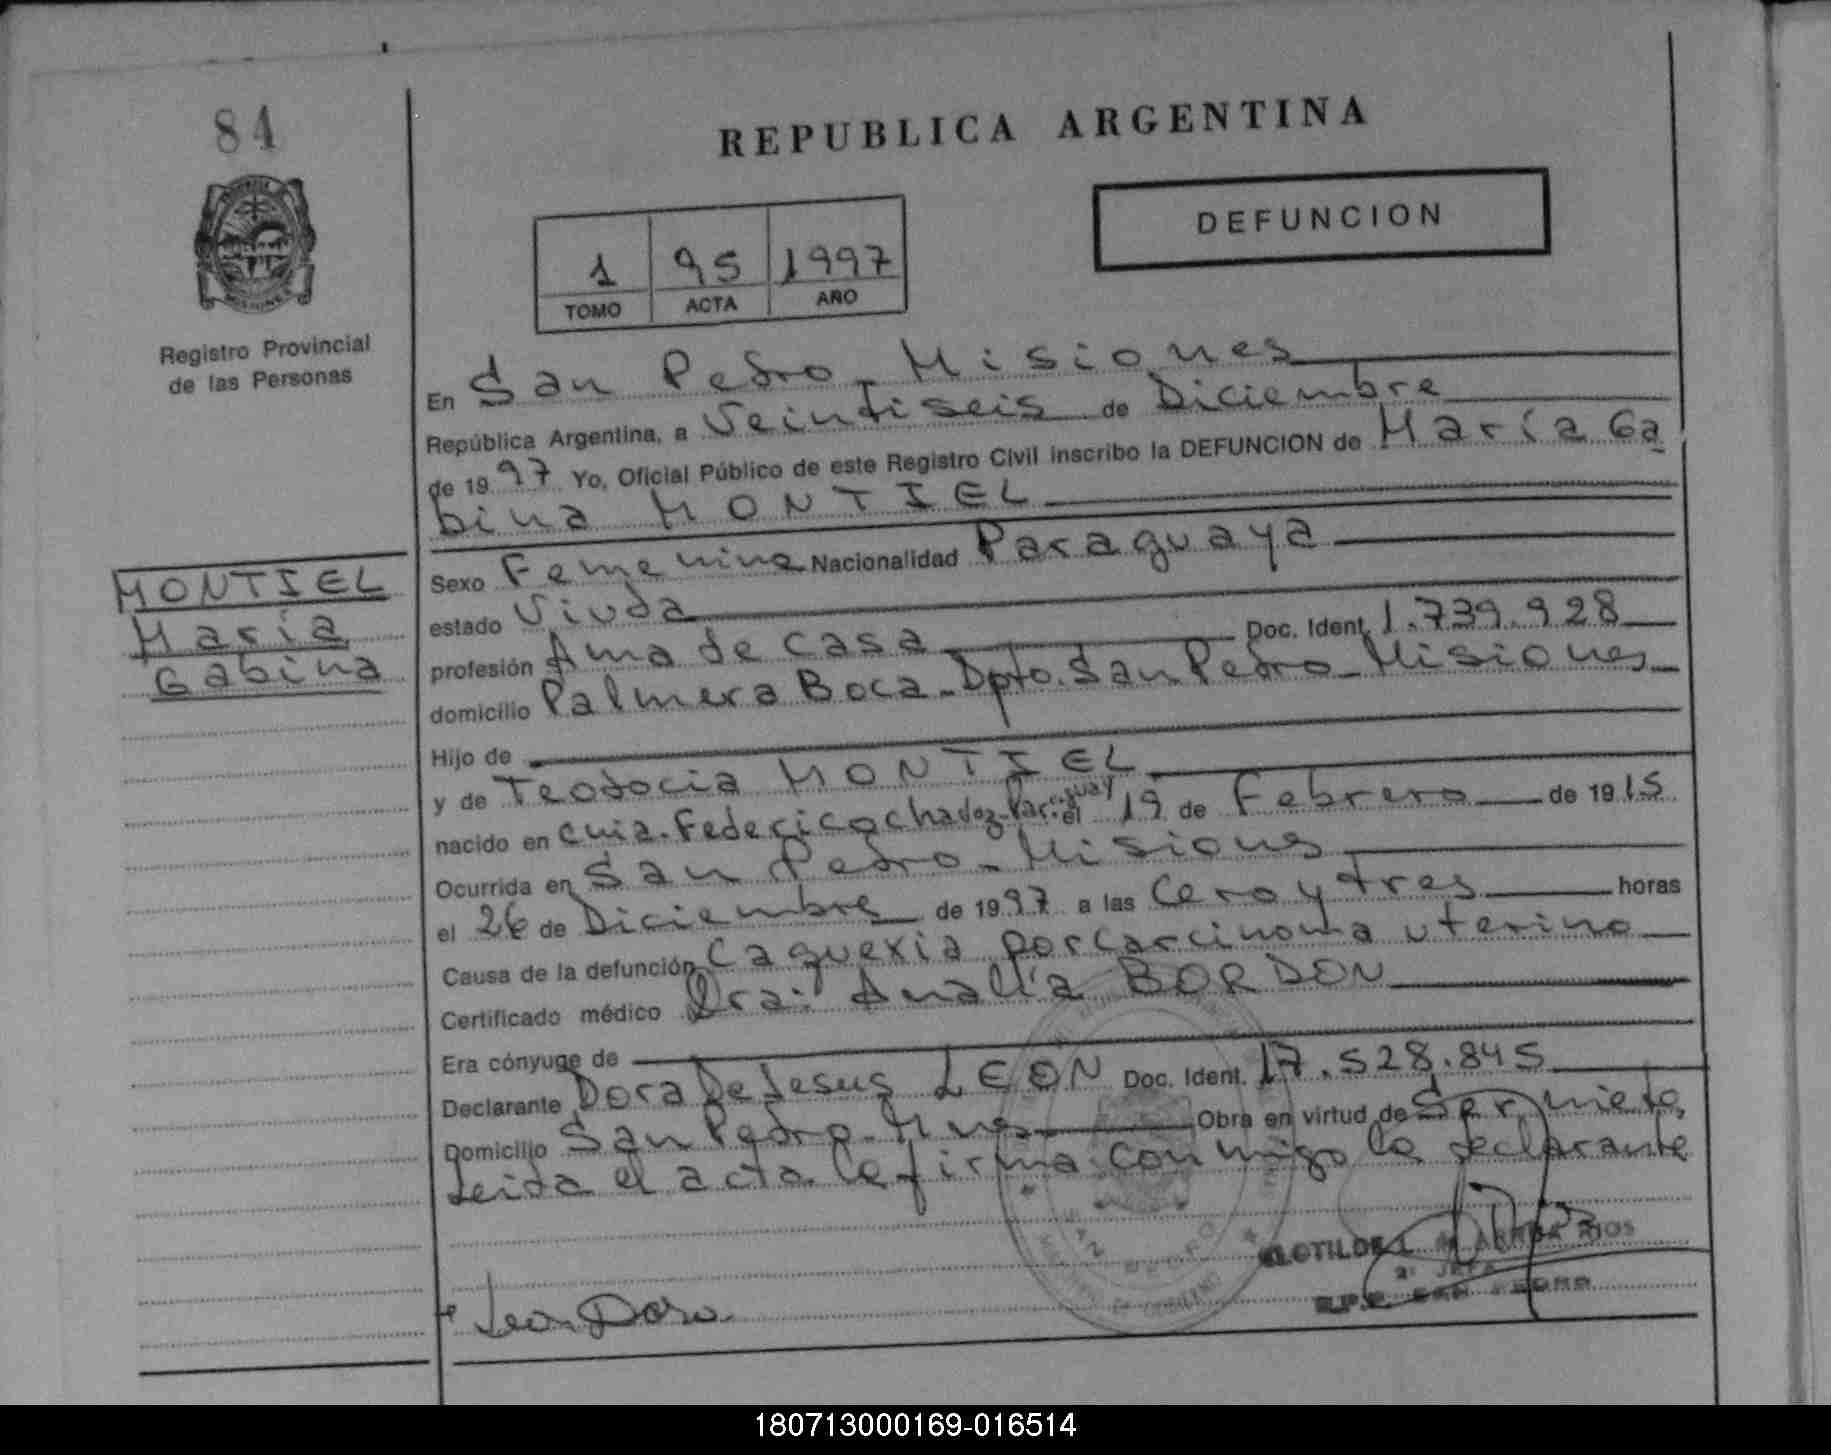 84
REPUBLICA ARGENTINA
DEFUNCION
1 95 1997
TOMO ACTA AÑO
Registro Provincial
de las Personas
En San Pedro - Misiones
República Argentina, a Veintiseis de Diciembre
de 1997 Yo, Oficial Público de este Registro Civil inscribo la DEFUNCION de María Ga
bina MONTIEL
MONTIEL
María
Gabina
Sexo Femenino Nacionalidad Paraguaya
estado Viuda
profesión Ama de casa Doc. Ident. 1.739.928
domicilio Palmera Boca - Dpto. San Pedro - Misiones
Hijo de
y de Teodocia MONTIEL
nacido en cnia. Federico chavez - Paraguay el 19 de Febrero de 1915
Ocurrida en San Pedro - Misiones
el 26 de Diciembre de 1997 a las Cero y tres horas
Causa de la defunción Caquexia por carcinoma uterino
Certificado médico Dra: Analía BORDON
Era cónyuge de
Declarante Dora De Jesus LEON Doc. Ident. 17.528.845
Domicilio San Pedro - Mnes Obra en virtud de Ser nieta,
Leida el acta la firma conmigo la declarante
CLOTILDE L. RIOS
2° JEFA
R.P.P. SAN PEDRO
Leon Dora
180713000169-016514